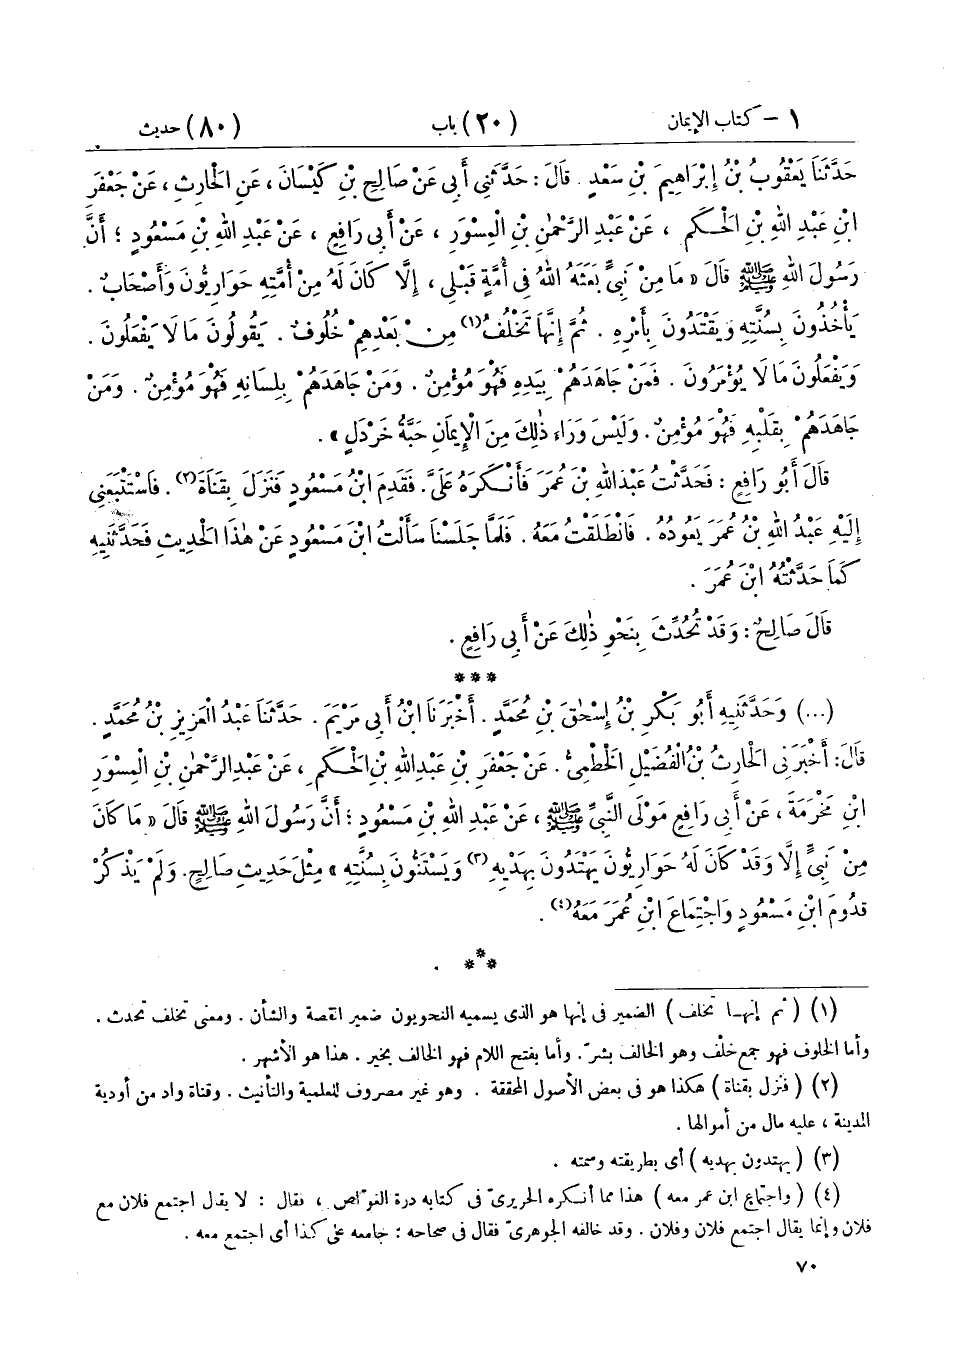 ١ - كتاب الإيمان (٢٠) باب (٨٠) حديث
حَدَّثَنَا يَعْقُوبُ بْنُ إِبْرَاهِيمَ بْنِ سَعْدٍ. قَالَ: حَدَّثَنِي أَبِي عَنْ صَالِحِ بْنِ كَيْسَانَ، عَنِ الْحَارِثِ، عَنْ جَعْفَرِ
ابْنِ عَبْدِ اللهِ بْنِ الْحَكَمِ، عَنْ عَبْدِ الرَّحْمٰنِ بْنِ الْمِسْوَرِ، عَنْ أَبِي رَافِعٍ، عَنْ عَبْدِ اللهِ بْنِ مَسْعُودٍ؛ أَنَّ
رَسُولَ اللهِ ﷺ قَالَ « مَا مِنْ نَبِيٍّ بَعَثَهُ اللهُ فِي أُمَّةٍ قَبْلِي، إِلَّا كَانَ لَهُ مِنْ أُمَّتِهِ حَوَارِيُّونَ وَأَصْحَابٌ.
يَأْخُذُونَ بِسُنَّتِهِ وَيَقْتَدُونَ بِأَمْرِهِ. ثُمَّ إِنَّهَا تَخْلُفُ(١) مِنْ بَعْدِهِمْ خُلُوفٌ. يَقُولُونَ مَا لَا يَفْعَلُونَ.
وَيَفْعَلُونَ مَا لَا يُؤْمَرُونَ. فَمَنْ جَاهَدَهُمْ بِيَدِهِ فَهُوَ مُؤْمِنٌ. وَمَنْ جَاهَدَهُمْ بِلِسَانِهِ فَهُوَ مُؤْمِنٌ. وَمَنْ
جَاهَدَهُمْ بِقَلْبِهِ فَهُوَ مُؤْمِنٌ. وَلَيْسَ وَرَاءَ ذٰلِكَ مِنَ الْإِيمَانِ حَبَّةُ خَرْدَلٍ ».
قَالَ أَبُو رَافِعٍ: فَحَدَّثْتُ عَبْدَ اللهِ بْنَ عُمَرَ فَأَنْكَرَهُ عَلَيَّ. فَقَدِمَ ابْنُ مَسْعُودٍ فَنَزَلَ بِقَنَاةَ(٢). فَاسْتَتْبَعَنِي
إِلَيْهِ عَبْدُ اللهِ بْنُ عُمَرَ يَعُودُهُ. فَانْطَلَقْتُ مَعَهُ. فَلَمَّا جَلَسْنَا سَأَلْتُ ابْنَ مَسْعُودٍ عَنْ هٰذَا الْحَدِيثِ فَحَدَّثَنِيهِ
كَمَا حَدَّثْتُهُ ابْنَ عُمَرَ.
قَالَ صَالِحٌ: وَقَدْ تُحُدِّثَ بِنَحْوِ ذٰلِكَ عَنْ أَبِي رَافِعٍ.
***
(...) وَحَدَّثَنِيهِ أَبُو بَكْرِ بْنُ إِسْحٰقَ بْنِ مُحَمَّدٍ. أَخْبَرَنَا ابْنُ أَبِي مَرْيَمَ. حَدَّثَنَا عَبْدُ الْعَزِيزِ بْنُ مُحَمَّدٍ.
قَالَ: أَخْبَرَنِي الْحَارِثُ بْنُ الْفُضَيْلِ الْخَطْمِيُّ. عَنْ جَعْفَرِ بْنِ عَبْدِ اللهِ بْنِ الْحَكَمِ، عَنْ عَبْدِ الرَّحْمٰنِ بْنِ الْمِسْوَرِ
ابْنِ مَخْرَمَةَ، عَنْ أَبِي رَافِعٍ مَوْلَى النَّبِيِّ ﷺ، عَنْ عَبْدِ اللهِ بْنِ مَسْعُودٍ؛ أَنَّ رَسُولَ اللهِ ﷺ قَالَ « مَا كَانَ
مِنْ نَبِيٍّ إِلَّا وَقَدْ كَانَ لَهُ حَوَارِيُّونَ يَهْتَدُونَ بِهَدْيِهِ(٣) وَيَسْتَنُّونَ بِسُنَّتِهِ » مِثْلَ حَدِيثِ صَالِحٍ. وَلَمْ يَذْكُرْ
قُدُومَ ابْنِ مَسْعُودٍ وَاجْتِمَاعَ ابْنِ عُمَرَ مَعَهُ(٤).
***
(١) ( ثم إنها تخلف ) الضمير في إنها هو الذي يسميه النحويون ضمير القصة والشأن. ومعنى تخلف تحدث.
وأما الخلوف فهو جمع خلْف وهو الخالف بشرّ. وأما بفتح اللام فهو الخالف بخير. هذا هو الأشهر.
(٢) ( فنزل بقناة ) هكذا هو في بعض الأصول المحققة. وهو غير مصروف للعلمية والتأنيث. وقناة واد من أودية
المدينة، عليه مال من أموالها.
(٣) ( يهتدون بهديه ) أي بطريقته وسمته.
(٤) ( واجتماع ابن عمر معه ) هذا مما أنكره الحريريّ في كتابه درة الغوّاص، فقال: لا يقال اجتمع فلان مع
فلان وإنما يقال اجتمع فلان وفلان. وقد خالفه الجوهريّ فقال في صحاحه: جامعه على كذا أي اجتمع معه.
٧٠